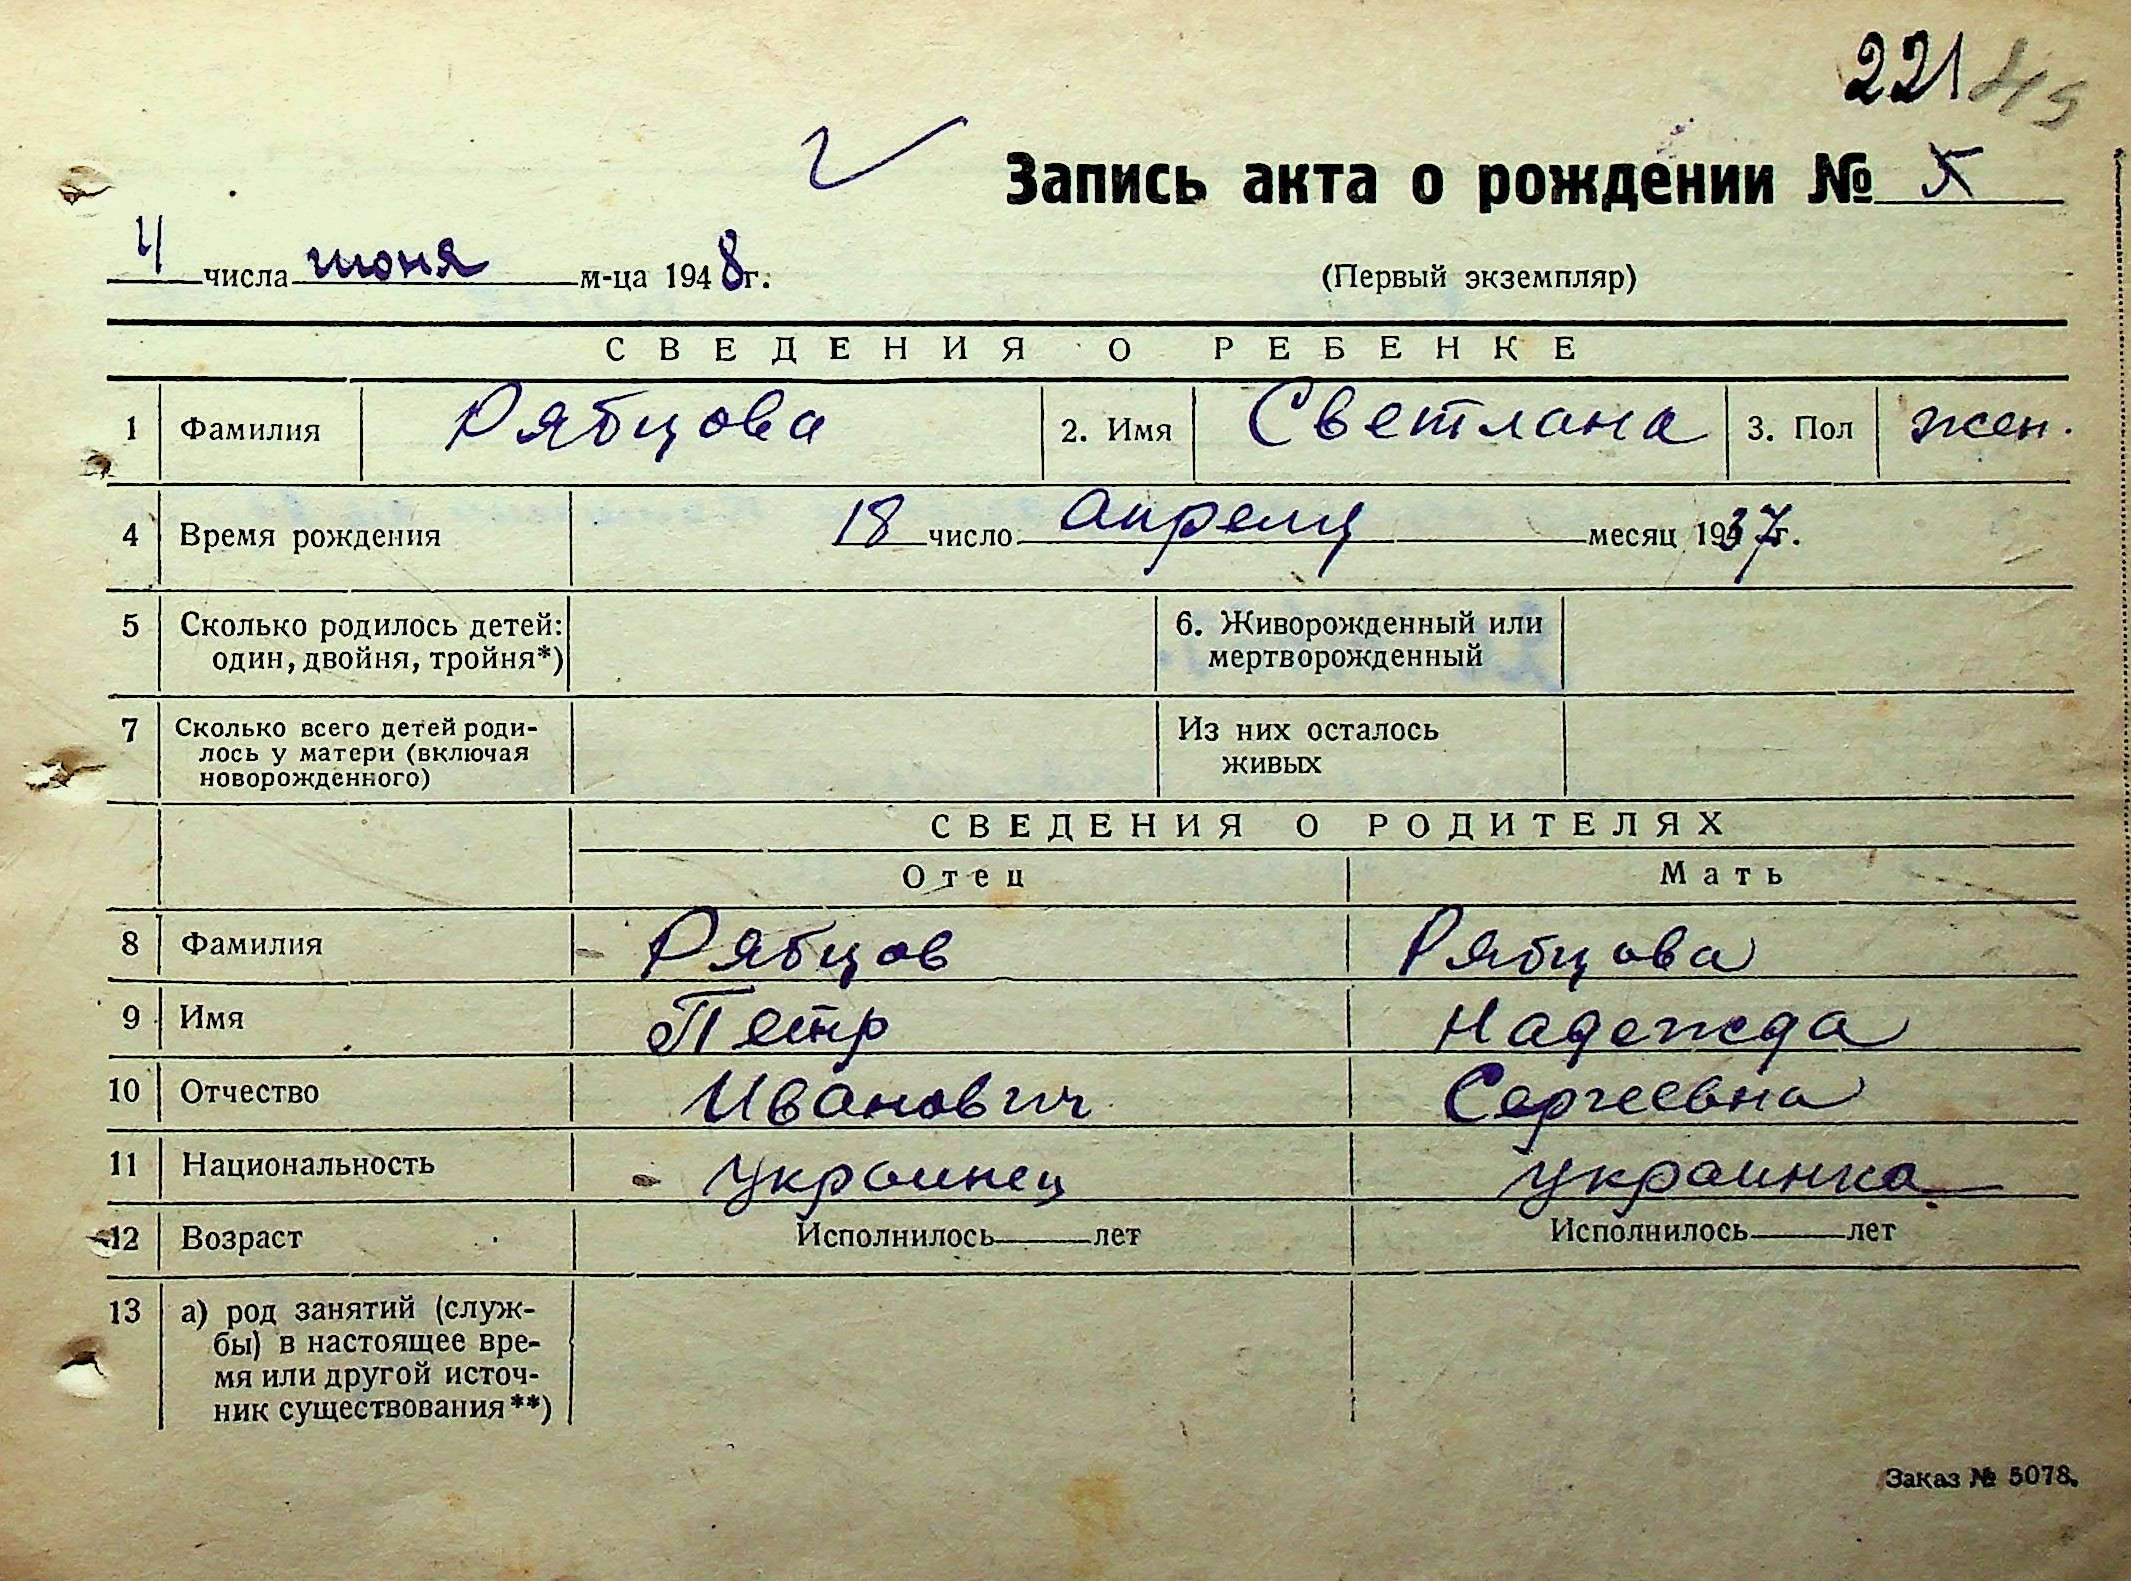 221 45
Запись акта о рождении № 5
4 числа июня м-ца 1948 г. (Первый экземпляр)
СВЕДЕНИЯ О РЕБЕНКЕ
1 Фамилия Рябцова 2. Имя Светлана 3. Пол жен.
4 Время рождения 18 число апреля месяц 1937 г.
5 Сколько родилось детей: 6. Живорожденный или
один, двойня, тройня*) мертворожденный
7 Сколько всего детей роди- Из них осталось
лось у матери (включая живых
новорожденного)
СВЕДЕНИЯ О РОДИТЕЛЯХ
Отец Мать
8 Фамилия Рябцов Рябцова
9 Имя Петр Надежда
10 Отчество Иванович Сергеевна
11 Национальность украинец украинка
12 Возраст Исполнилось лет Исполнилось лет
13 а) род занятий (служ-
бы) в настоящее вре-
мя или другой источ-
ник существования**)
Заказ № 5078.